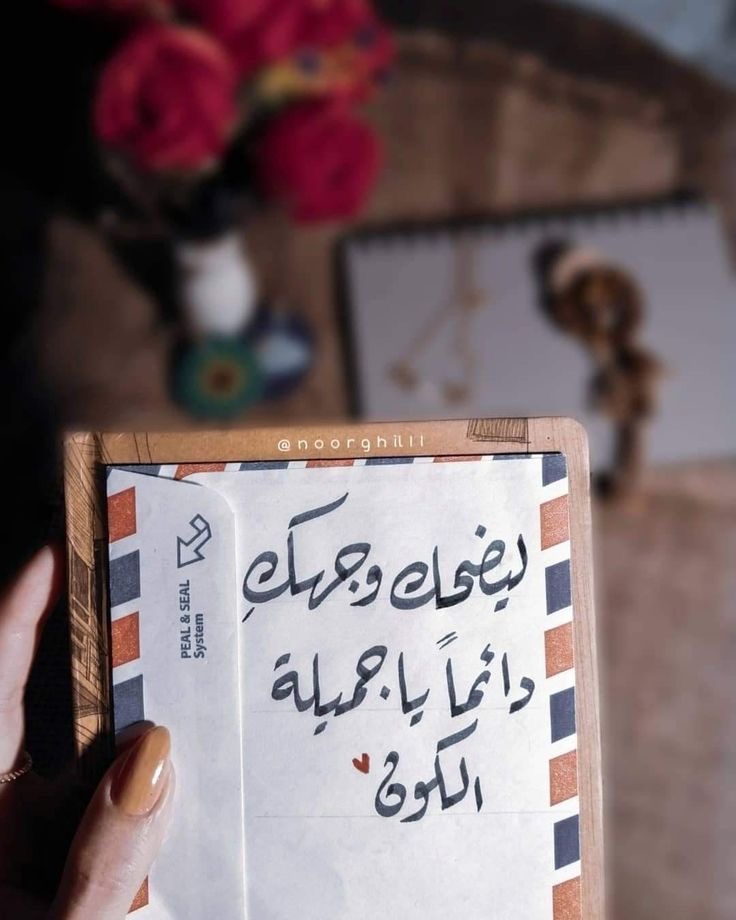 @noorghilll
PEAL & SEAL
System
ليضحك وجهكِ
دائماً يا جميلة
الكون